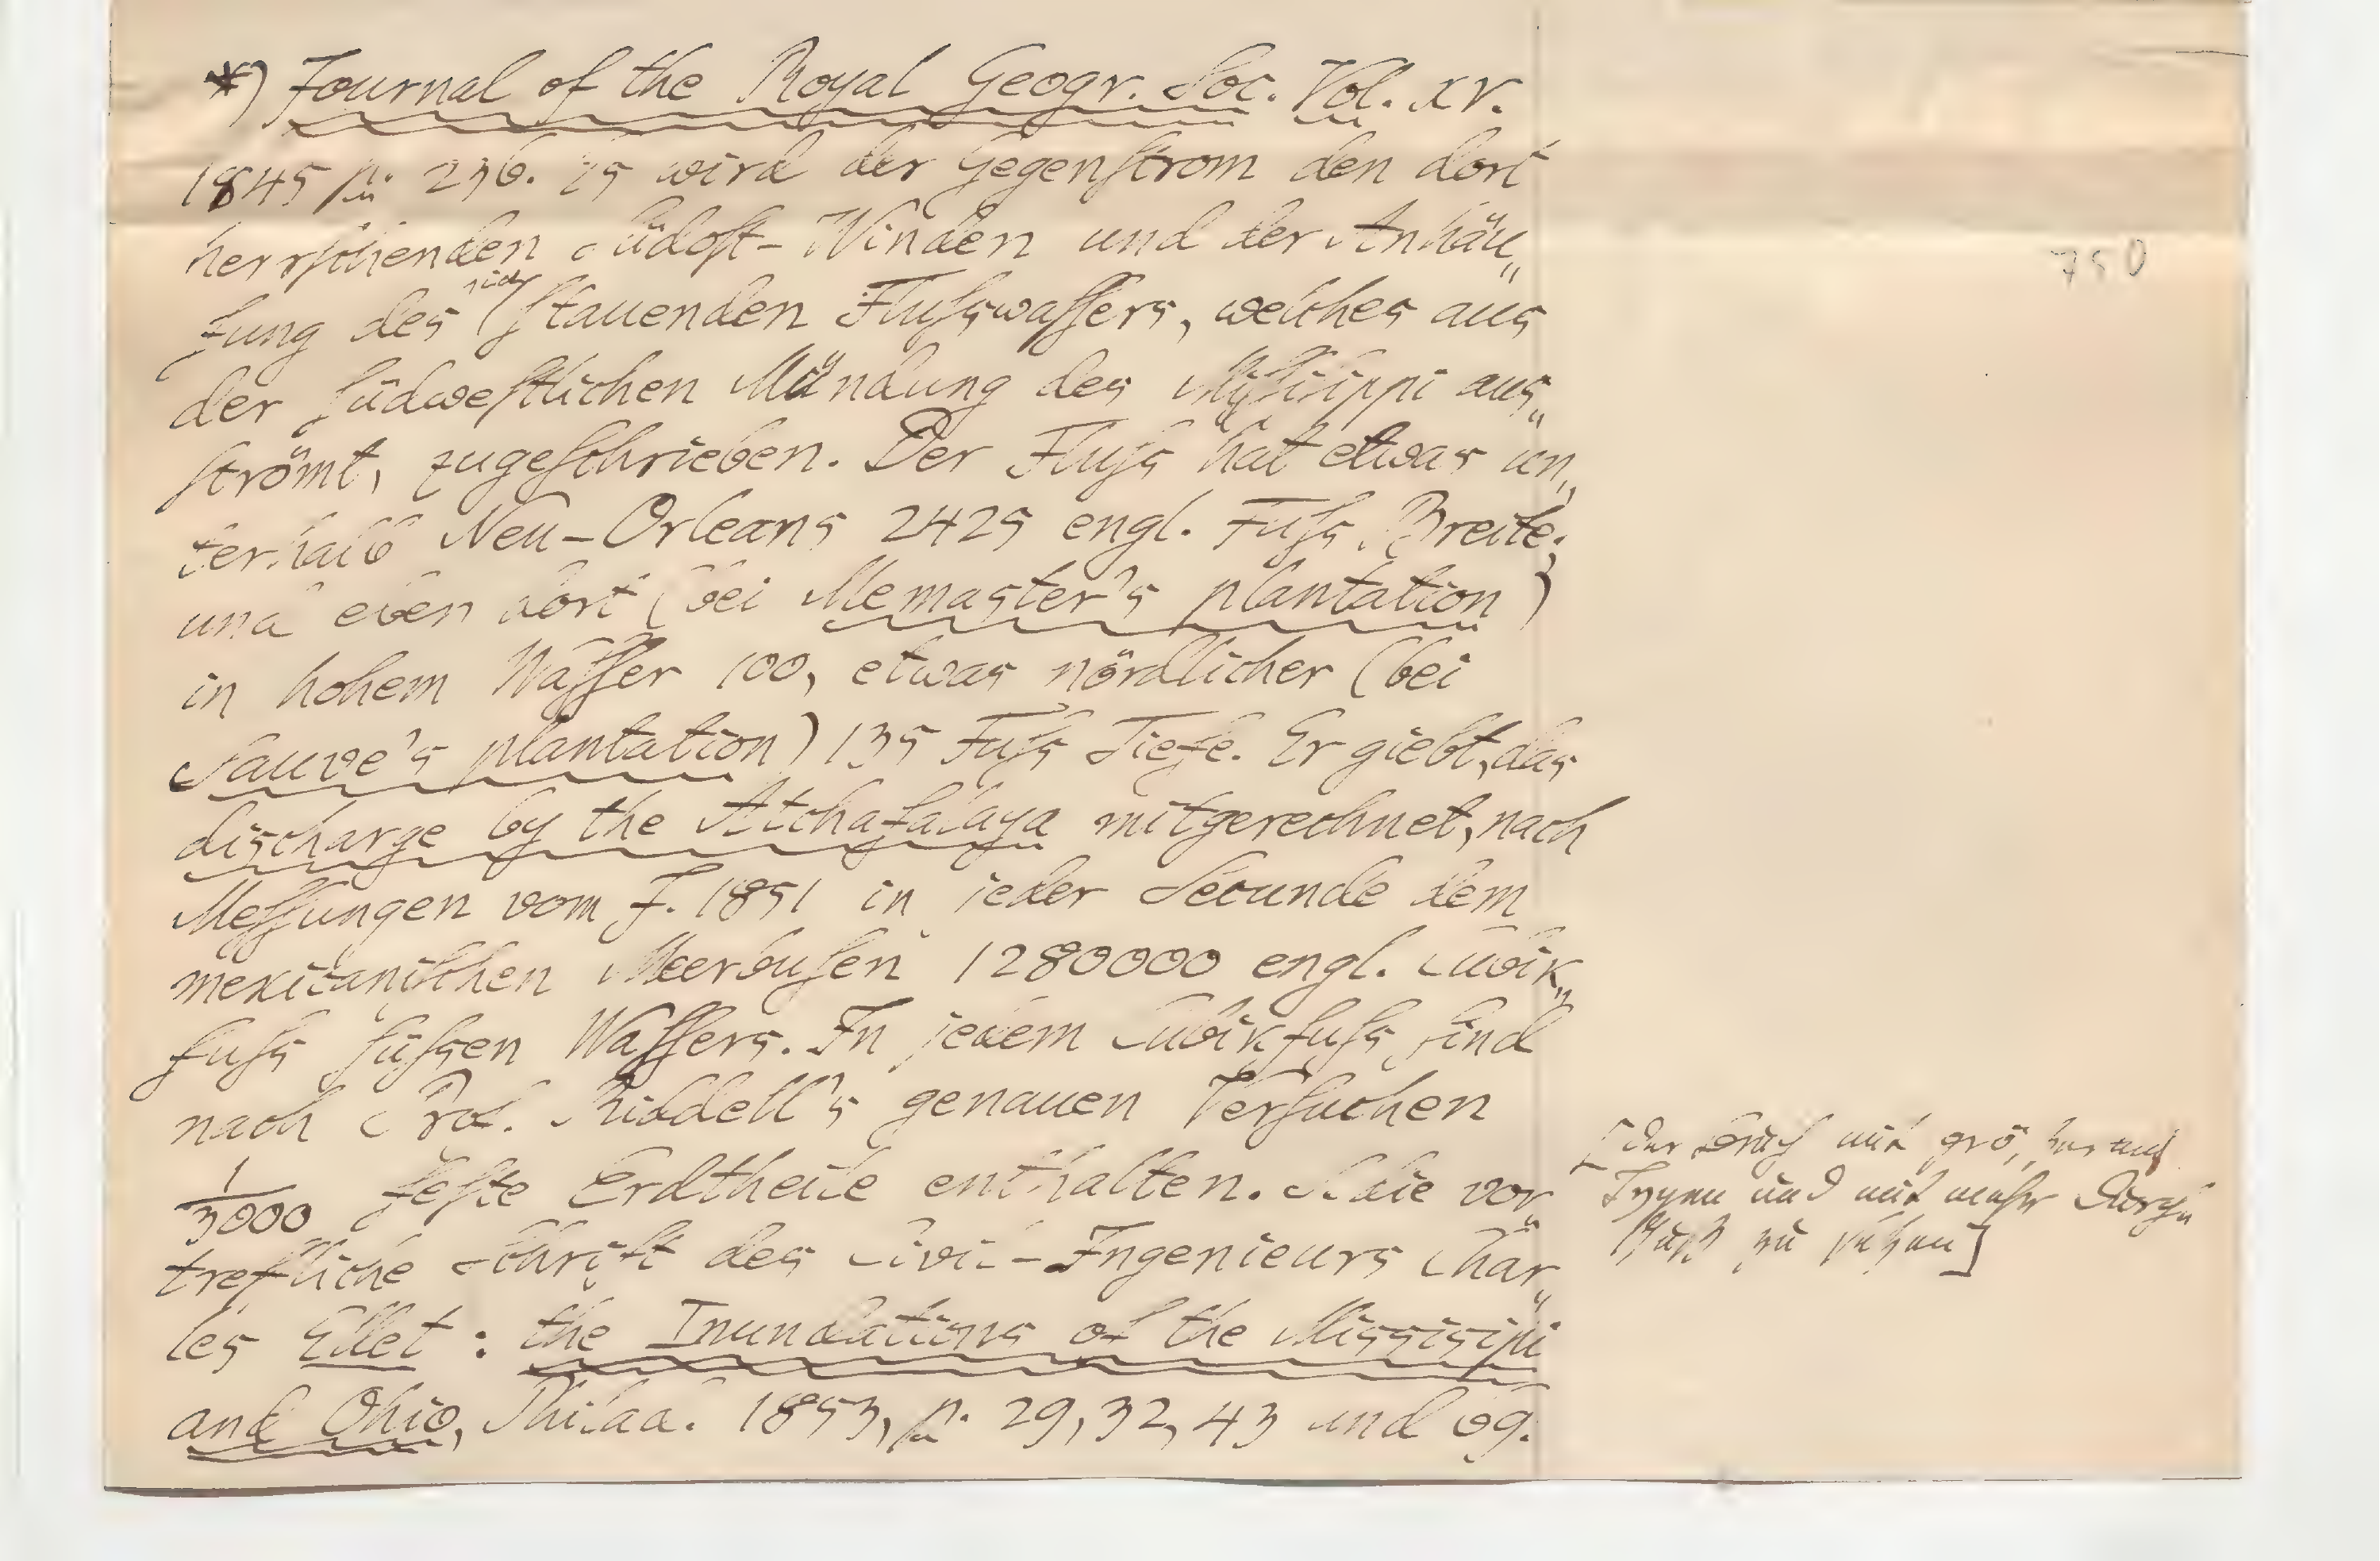 *) Journal of the Royal Geogr. Soc. Vol. XV.
1845 p. 236. Es wird der Gegenſtrom den dort
herrſchenden Südoſt-Winden und der Anhäu„
fung des ſich ſtauenden Fluſswaſſers, welches aus
der ſüdweſtlichen Mündung des Miſſiſippi aus„
ſtrömt, zugeſchrieben. Der Fluſs hat etwas un„
terhalb Neu-Orleans 2425 engl. Fuſs Breite;
und eben dort (bei Memaster's plantation)
in hohem Waſſer 100, etwas nördlicher (bei
Sauve's plantation) 135 Fuſs Tiefe. Er giebt, das
discharge by the Atchafalaya mitgerechnet, nach
Meſſungen vom J. 1851 in jeder Secunde dem
mexicaniſchen Meerbuſen 1280000 engl. Cubik„
fuſs ſüſsen Waſſers. In jedem Cubikfuſs ſind
nach Prof. Riddell's genauen Verſuchen
1/3000 feſte Erdtheile enthalten. S. die vor„
trefliche Schrift des Civil-Ingenieurs Char„
les Ellet: the Inundations of the Missisipi
and Ohio, Philad. 1853, p. 29, 32, 43 und 59.
750
[der Bruch mit grö„ und
Typen und mit mehr
zu ſetzen]